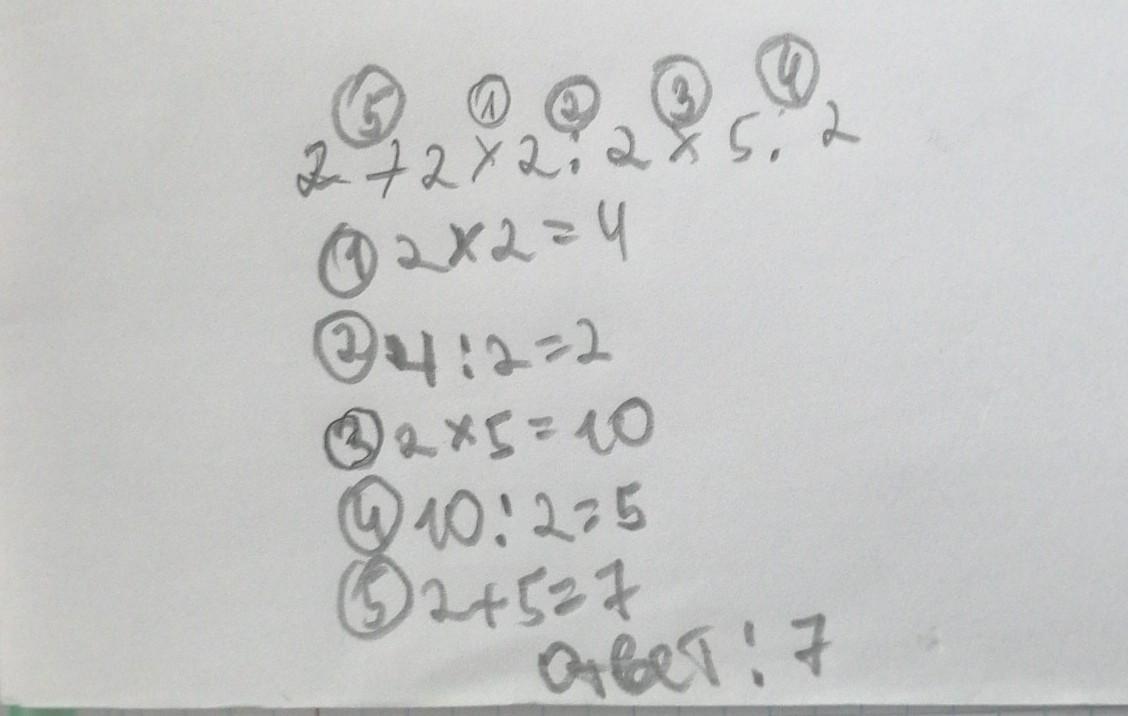 ⑤ ① ② ③ ④
2+2×2:2×5:2
① 2×2=4
② 4:2=2
③ 2×5=10
④ 10:2=5
⑤ 2+5=7
ответ: 7